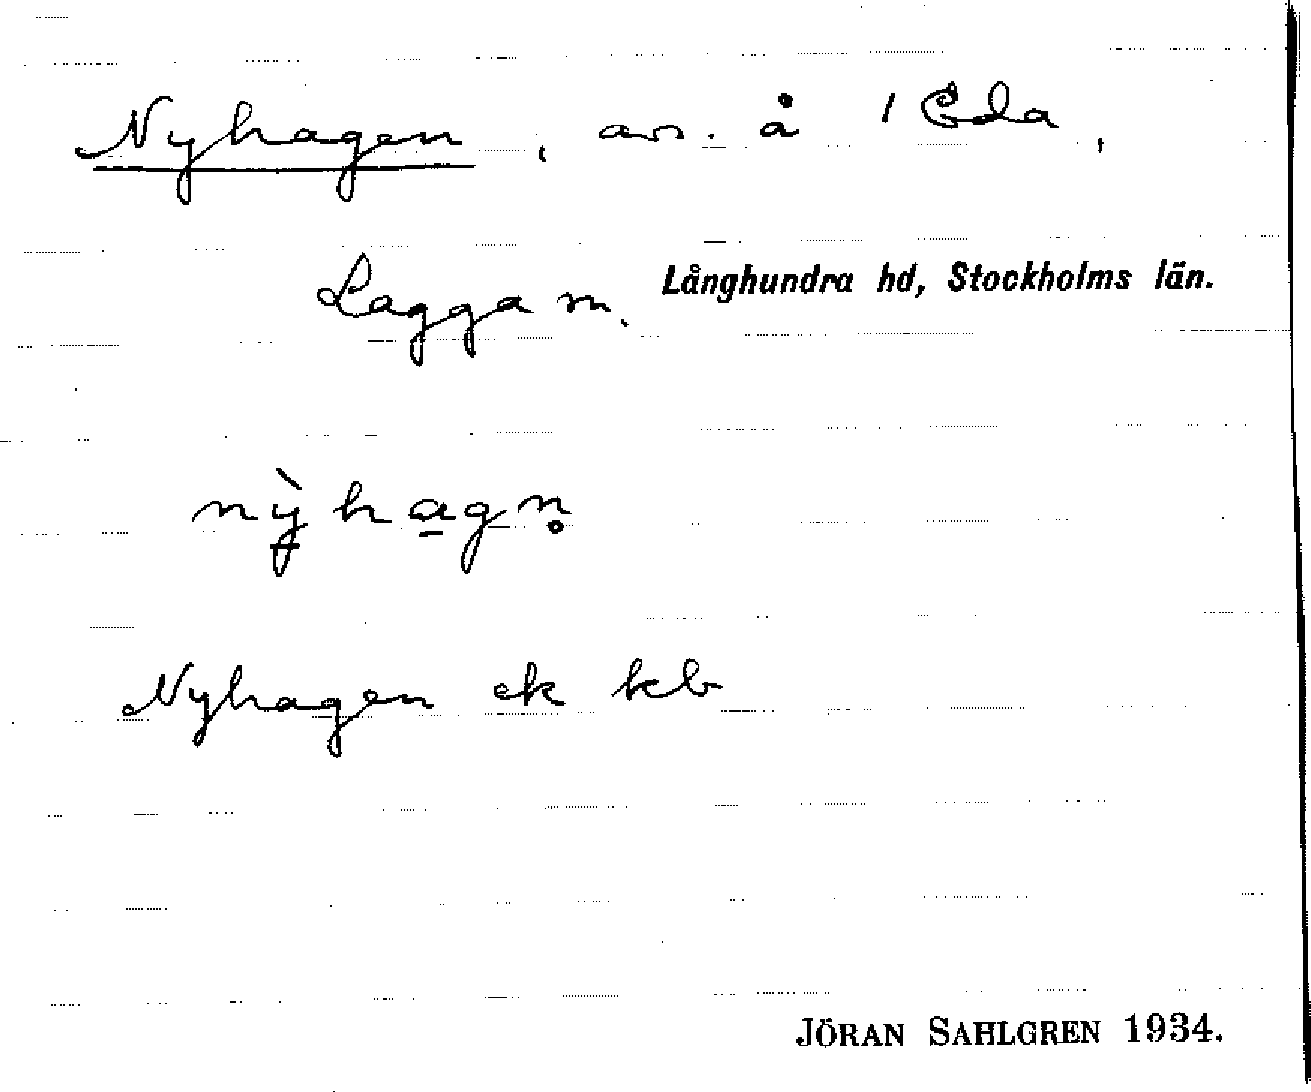 Nyhagen, avs. å 1 Eda,
Lagga sn. Långhundra hd, Stockholms län.
nỳha̲gn̥
Nyhagen ek kb
JÖRAN SAHLGREN 1934.